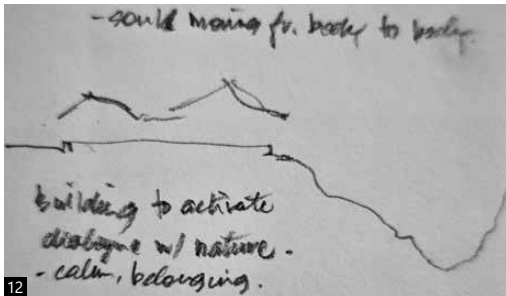 - souls moving fr. body to body.
building to activate
dialogue w/ nature.
- calm, belonging.
12